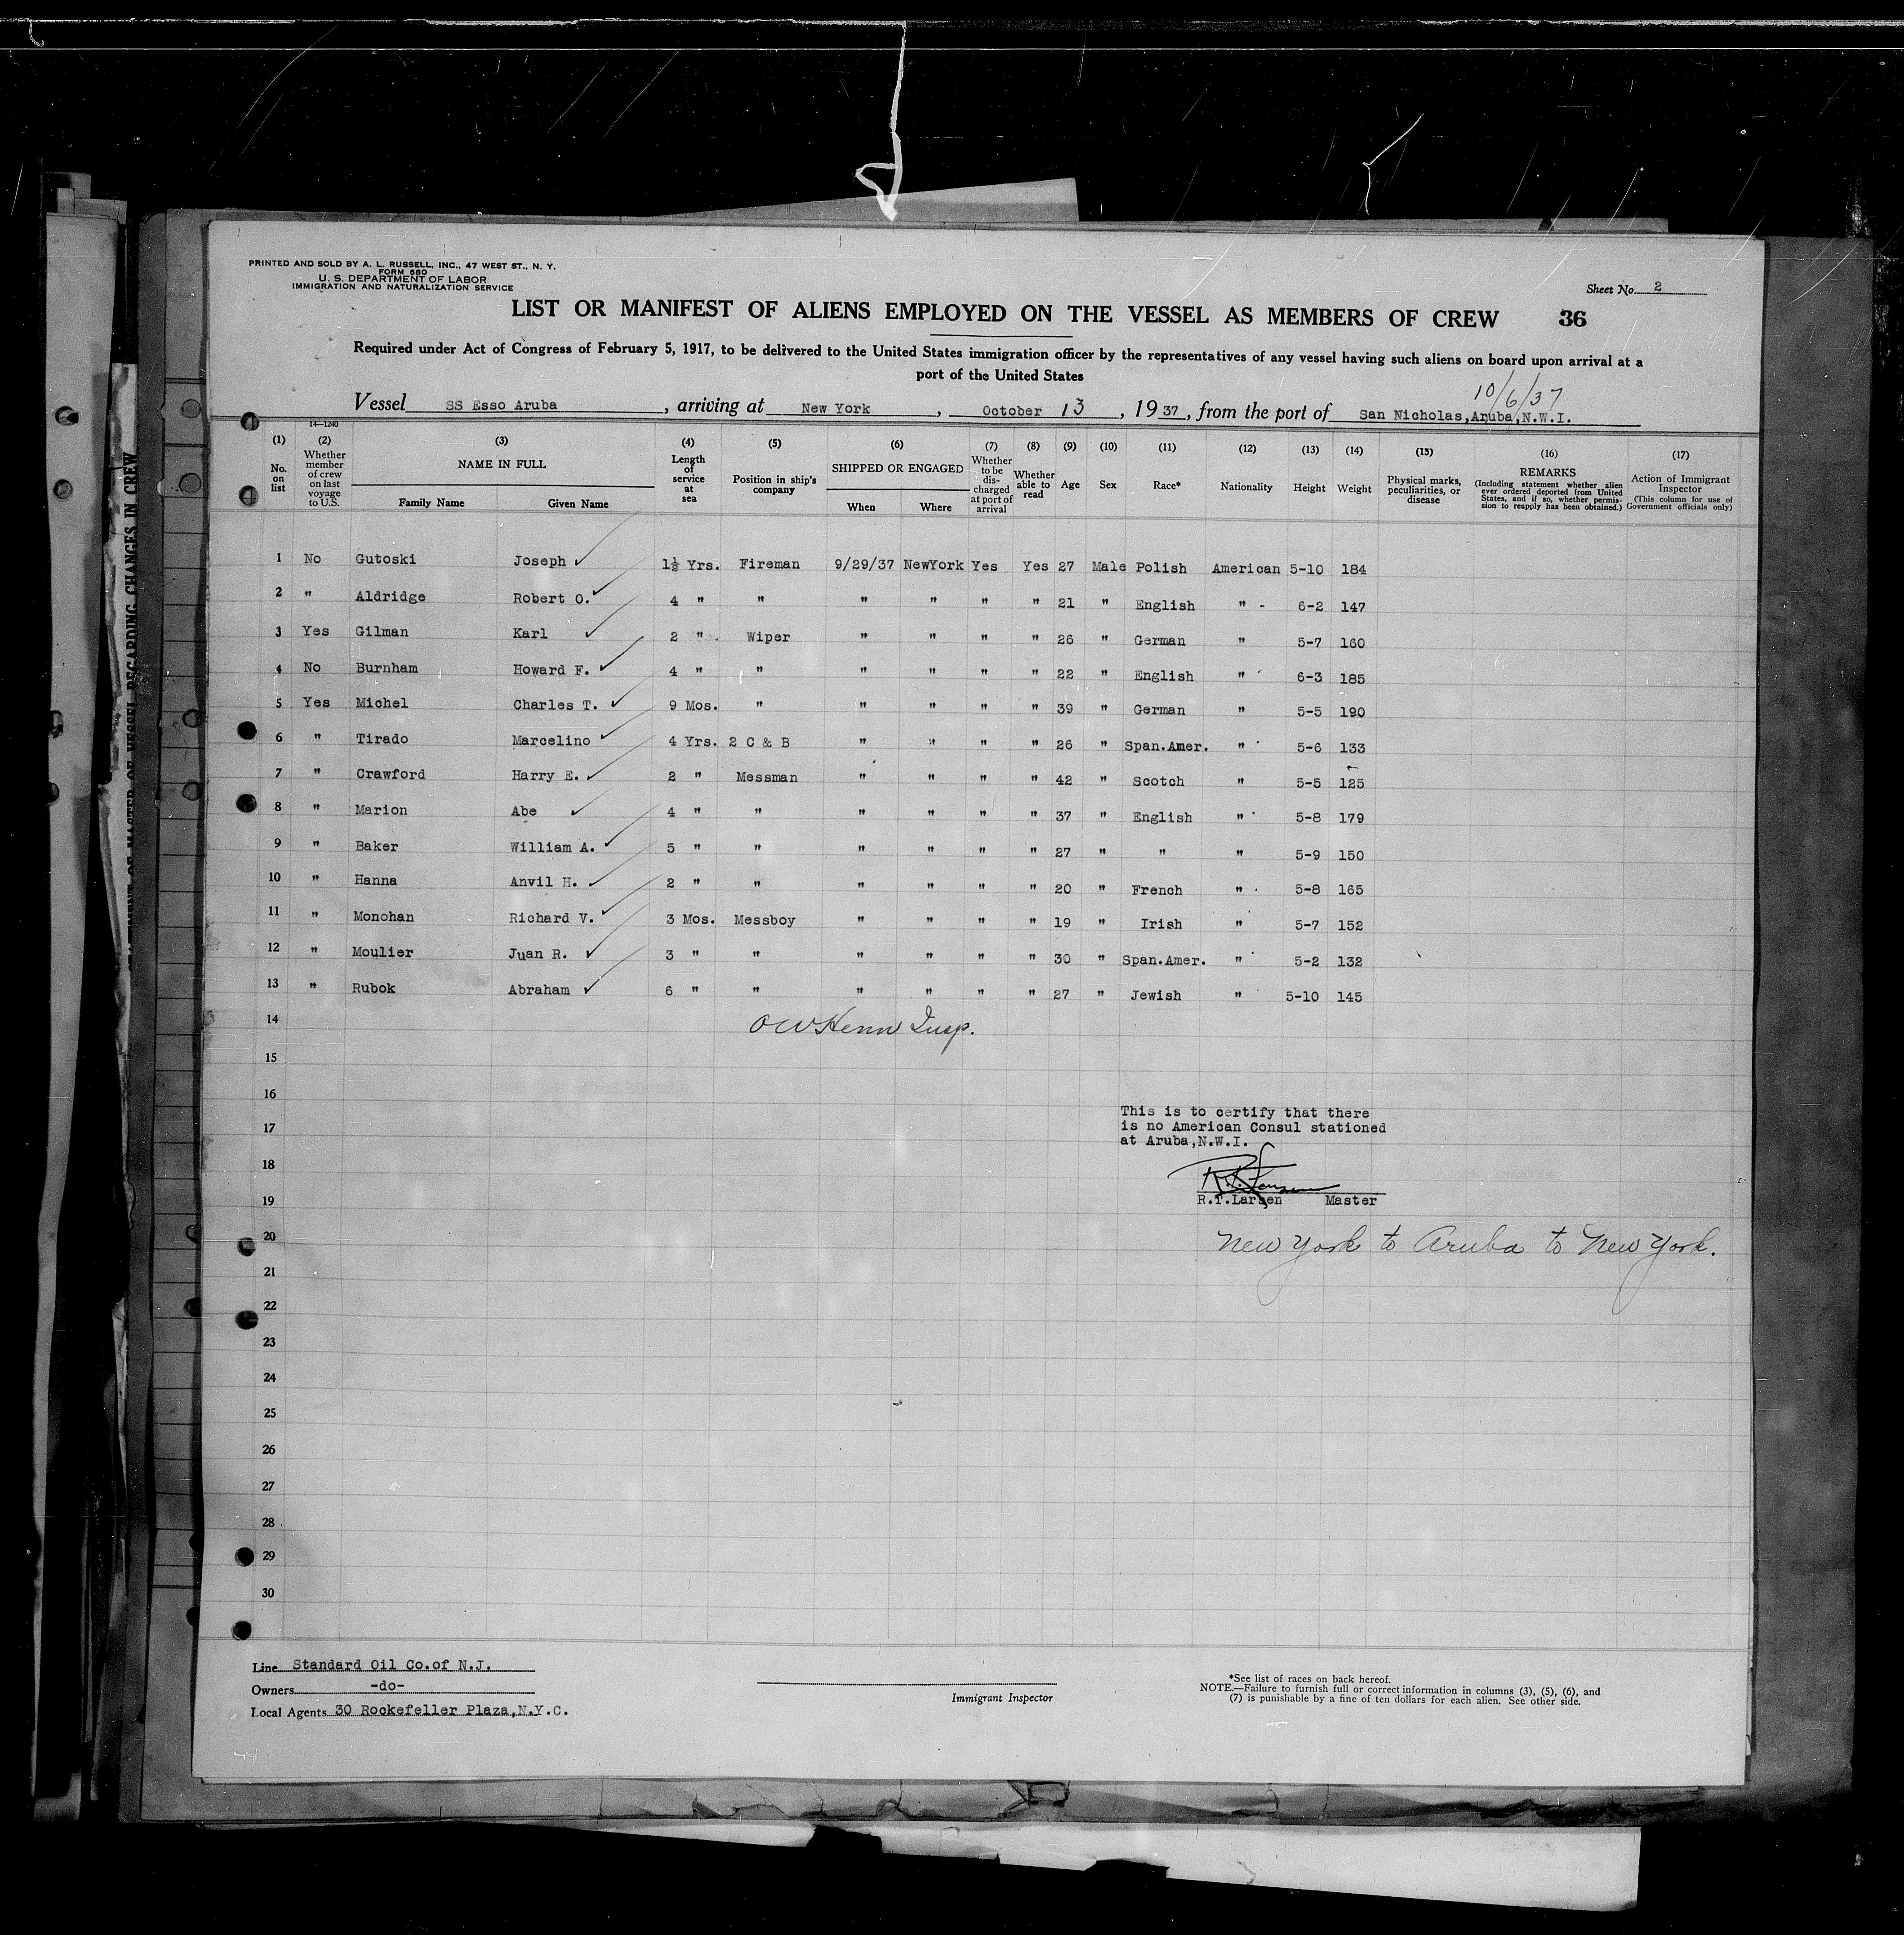 PRINTED AND SOLD BY A. L. RUSSELL, INC., 47 WEST ST., N. Y.
FORM 680
U. S. DEPARTMENT OF LABOR
IMMIGRATION AND NATURALIZATION SERVICE
Sheet No. 2
LIST OR MANIFEST OF ALIENS EMPLOYED ON THE VESSEL AS MEMBERS OF CREW 36
Required under Act of Congress of February 5, 1917, to be delivered to the United States immigration officer by the representatives of any vessel having such aliens on board upon arrival at a
port of the United States
10/6/37
Vessel SS Esso Aruba, arriving at New York, October 13, 1937, from the port of San Nicholas,Aruba,N.W.I.
14—1240
(1) No. on list
(2) Whether member of crew on last voyage to U.S.
(3) NAME IN FULL Family Name Given Name
(4) Length of service at sea
(5) Position in ship's company
(6) SHIPPED OR ENGAGED When Where
(7) Whether to be discharged at port of arrival
(8) Whether able to read
(9) Age
(10) Sex
(11) Race*
(12) Nationality
(13) Height
(14) Weight
(15) Physical marks, peculiarities, or disease
(16) REMARKS (Including statement whether alien ever ordered deported from United States, and if so, whether permission to reapply has been obtained.)
(17) Action of Immigrant Inspector (This column for use of Government officials only)
1 No Gutoski Joseph ✓ 1½ Yrs. Fireman 9/29/37 NewYork Yes Yes 27 Male Polish American 5-10 184
2 " Aldridge Robert O. ✓ 4 " " " " " " 21 " English " 6-2 147
3 Yes Gilman Karl ✓ 2 " Wiper " " " " 26 " German " 5-7 160
4 No Burnham Howard F. ✓ 4 " " " " " " 22 " English " 6-3 185
5 Yes Michel Charles T. ✓ 9 Mos. " " " " " 39 " German " 5-5 190
6 " Tirado Marcelino ✓ 4 Yrs. 2 C & B " " " " 26 " Span.Amer. " 5-6 133
7 " Crawford Harry E. ✓ 2 " Messman " " " " 42 " Scotch " 5-5 125
8 " Marion Abe ✓ 4 " " " " " " 37 " English " 5-8 179
9 " Baker William A. ✓ 5 " " " " " " 27 " " " 5-9 150
10 " Hanna Anvil H. ✓ 2 " " " " " " 20 " French " 5-8 165
11 " Monohan Richard V. ✓ 3 Mos. Messboy " " " " 19 " Irish " 5-7 152
12 " Moulier Juan R. ✓ 3 " " " " " " 30 " Span.Amer. " 5-2 132
13 " Rubok Abraham ✓ 6 " " " " " " 27 " Jewish " 5-10 145
14 OW Henn Insp.
15
16
This is to certify that there
17 is no American Consul stationed
at Aruba,N.W.I.
18
19 R.T.Larsen Master
20 New York to Aruba to New York.
21
22
23
24
25
26
27
28
29
30
Line Standard Oil Co.of N.J.
Owners -do-
Local Agents 30 Rockefeller Plaza,N.Y.C.
Immigrant Inspector
*See list of races on back hereof.
NOTE.—Failure to furnish full or correct information in columns (3), (5), (6), and
(7) is punishable by a fine of ten dollars for each alien. See other side.
OF MASTER OF VESSEL REGARDING CHANGES IN CREW